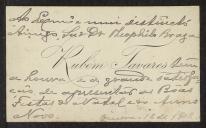 Ao Exmo e mui distincto
Amigo, Snr. Dr. Theophilo Braga
Rubem Tavares tem
a honra e a grande satisfa-
ção de apresentar as Boas
Festas do Natal e do Anno
Novo.